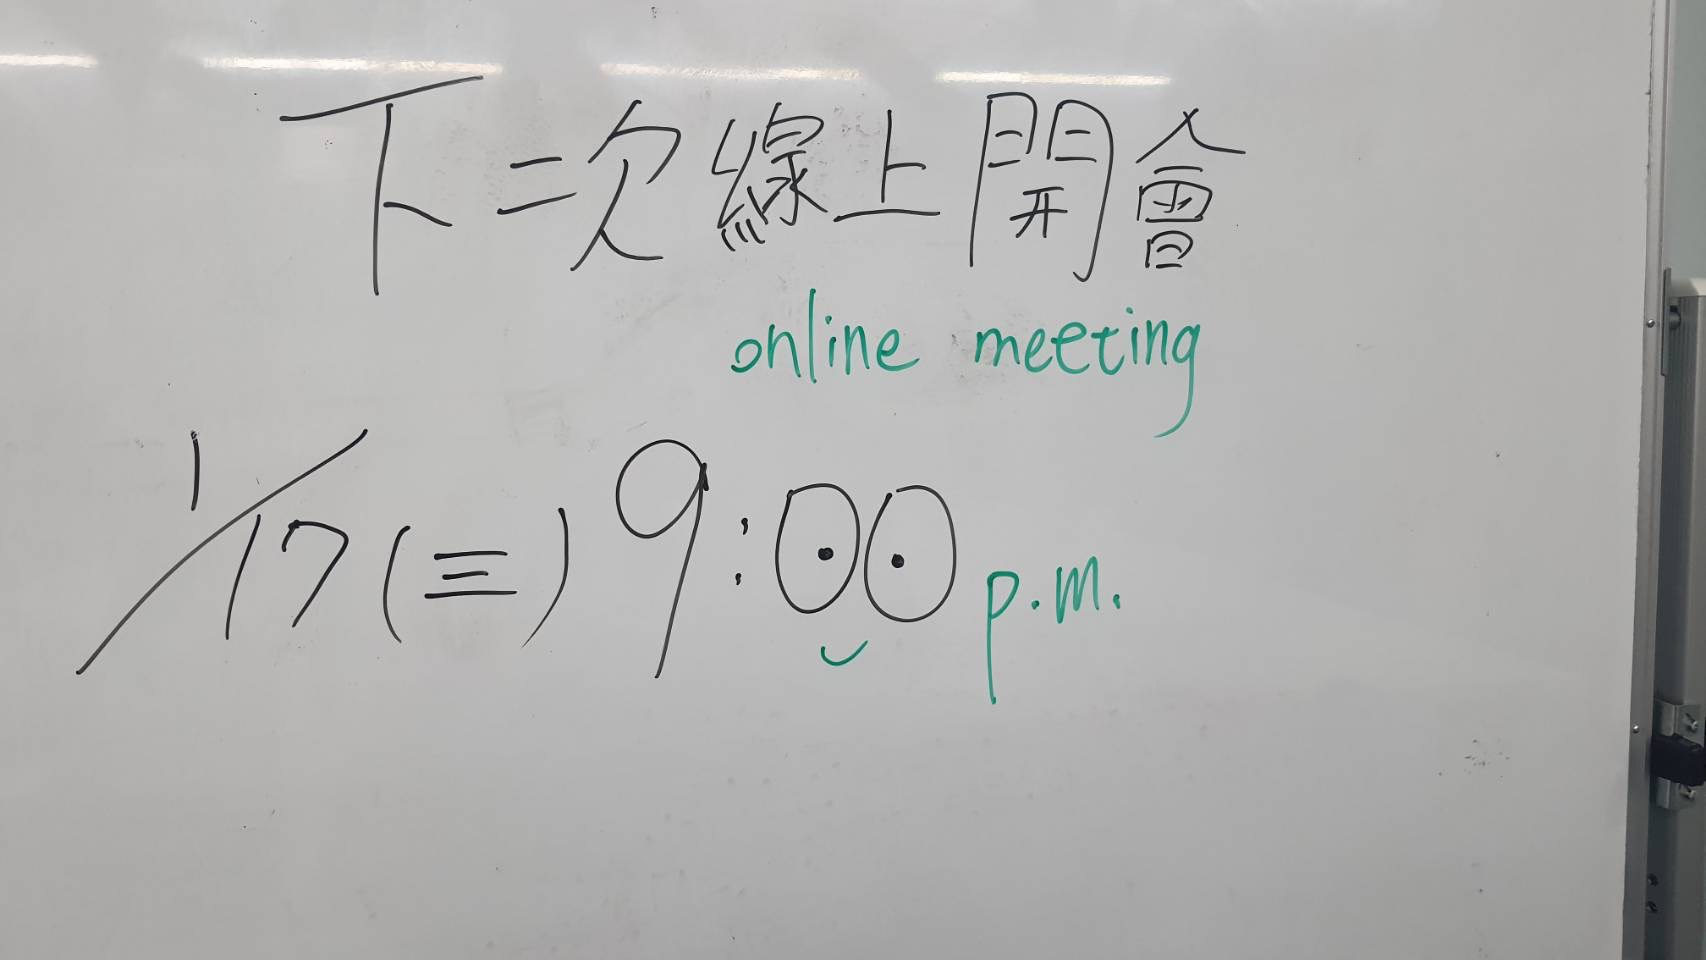 下次線上開會
online meeting
1/17(三) 9:00 p.m.